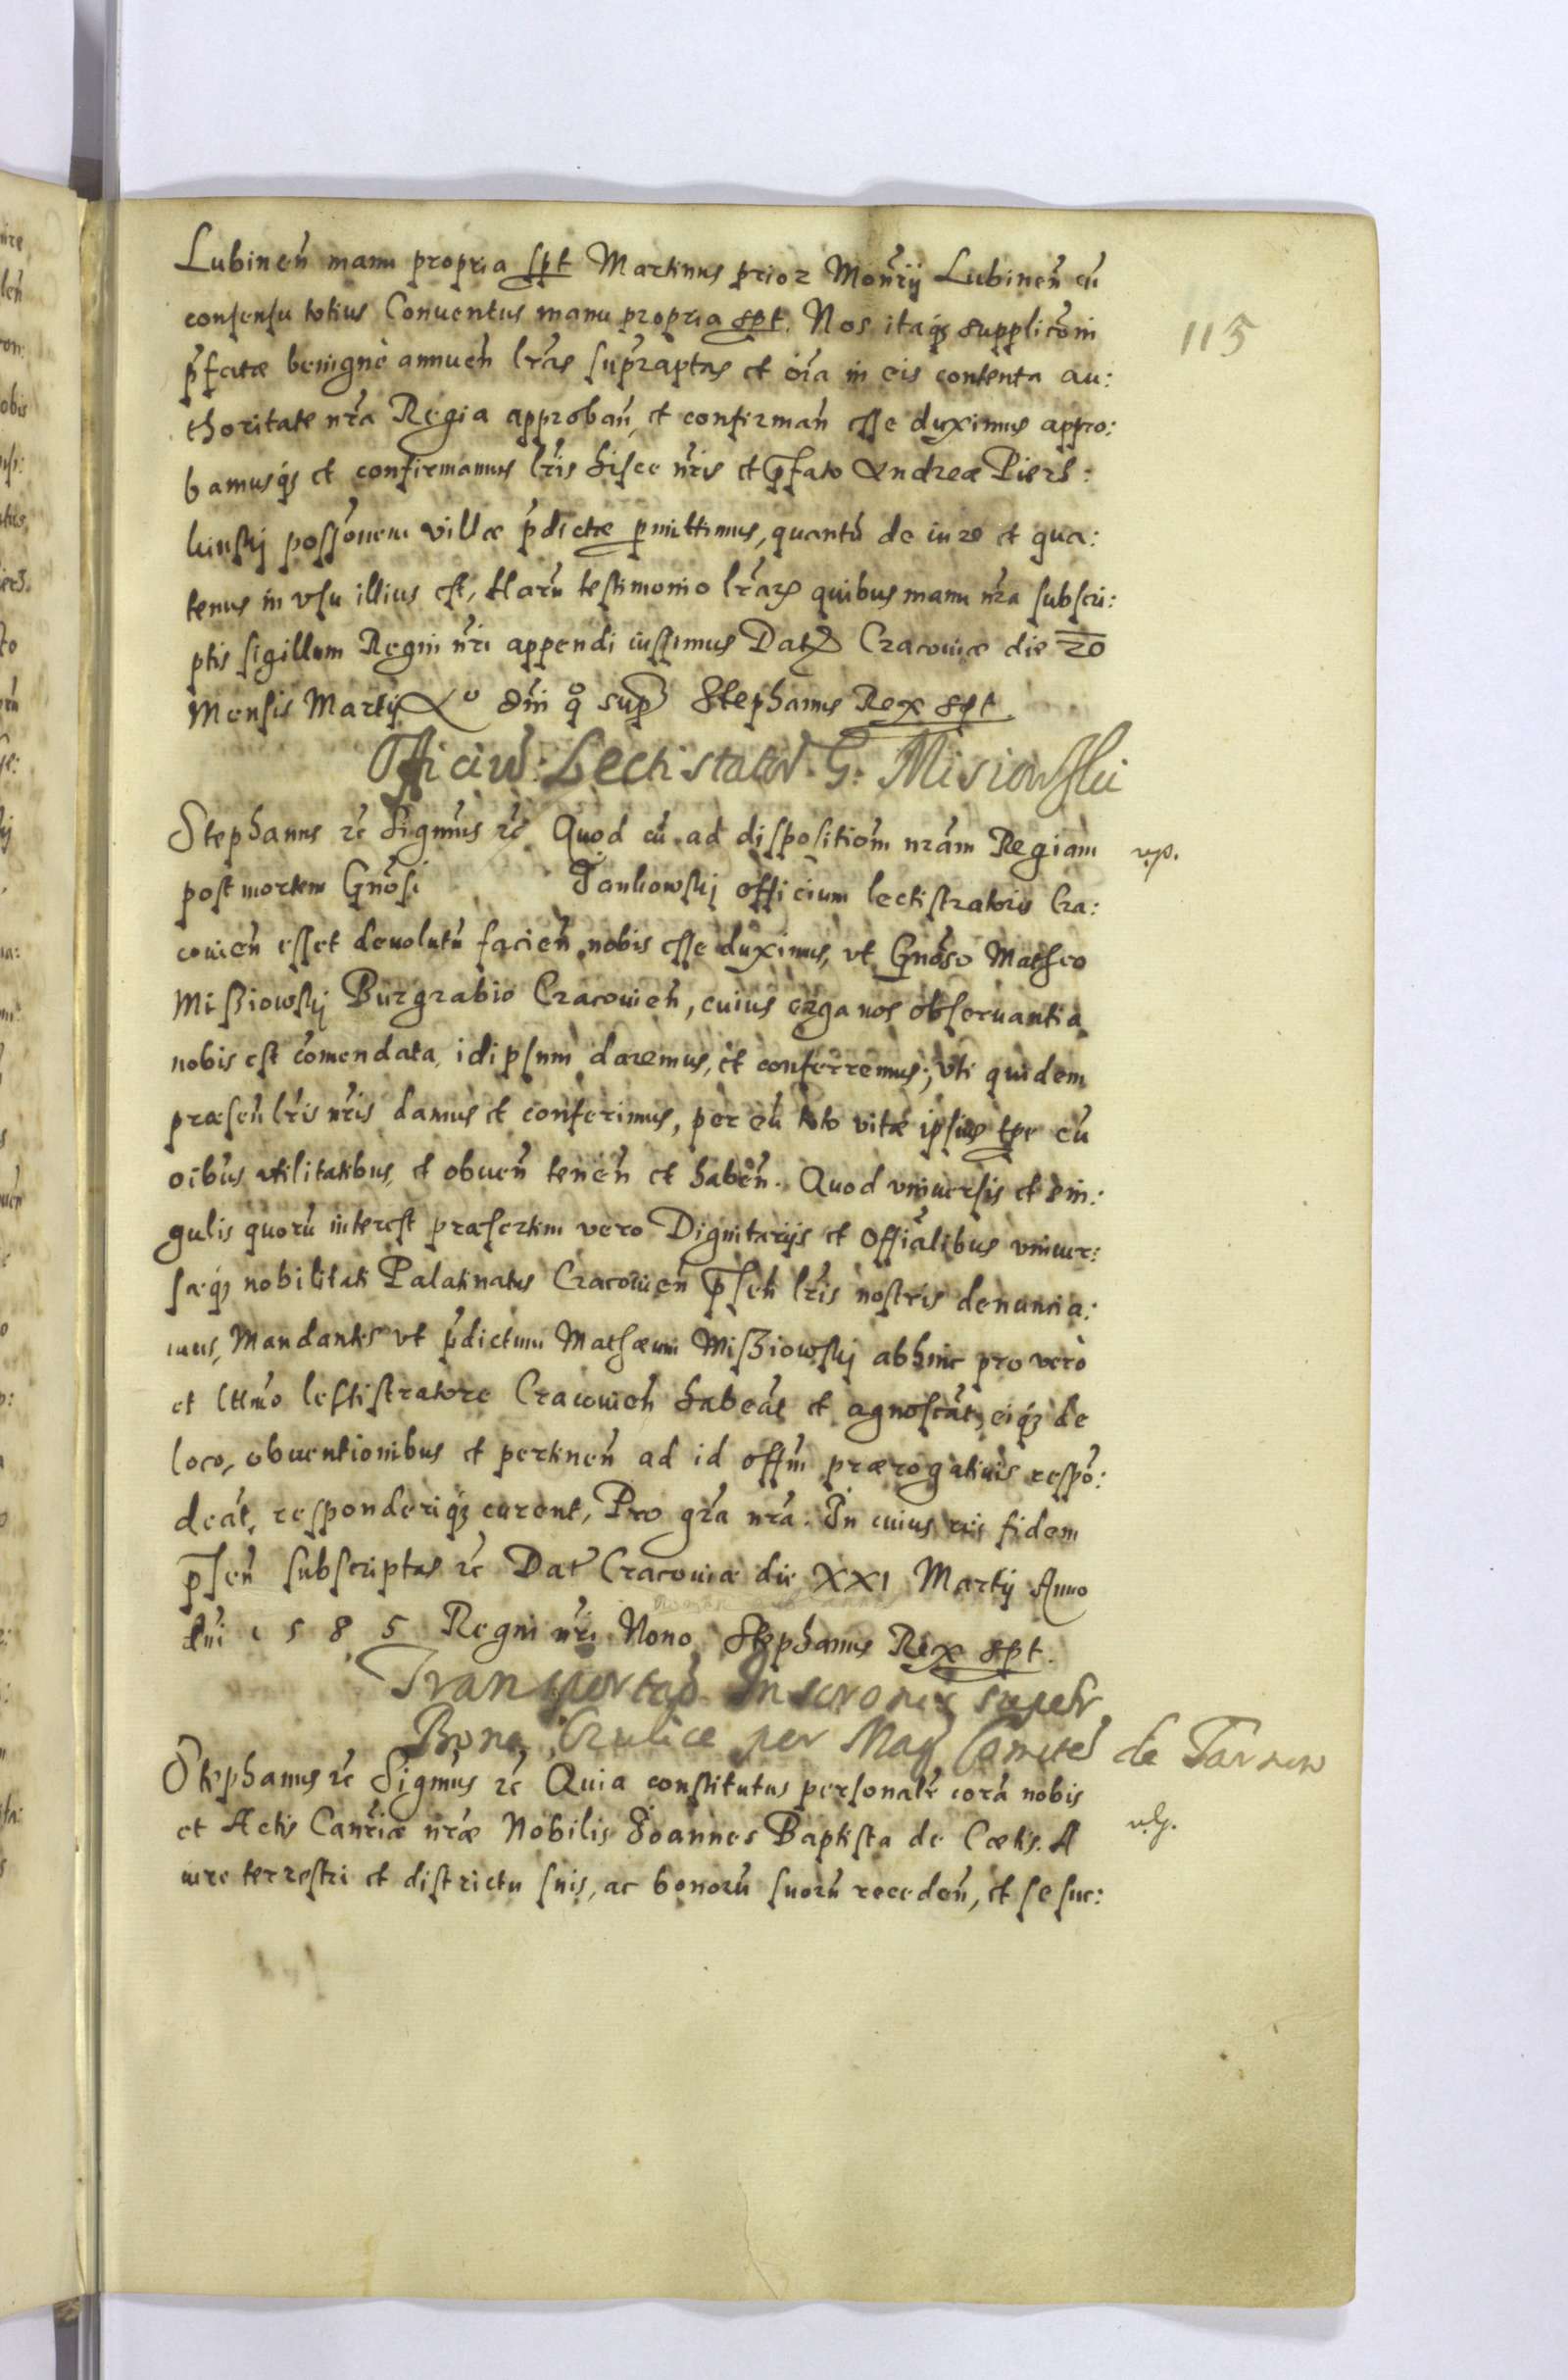 115
Lubineñ manu propria spt Martinus prior Moñrij Lubineñ cũ
consensu totius Conuentus manu propria spt. Nos itaq₃ supplicõni
p̃fatæ benignè annueñ lr̃as sup̃raptas et oĩa in eis contenta au:
thoritate nr̃a Regia approbañ, et confirmañ esse duximus appro:
bamusq₃ et confirmamus lr̃is hisce nr̃is et p̃fato Andreæ Piers:
possõnem villæ p̃dictæ pmittimus, quantũ de iure et qua:
tenus in vsu illius est, Harũ testimonio lr̃arũ quibus manu nr̃a subscri:
ptis sigillum Regni nr̃i appendi iussimus Datũ Cracouiæ die 20
Mensis Martij Aº dñi q̊ sup Stephanus Rex spt.
Officiũ Lectistator G. Misiowski
Stephanus rc̃ Signmus rc̃ Quod cũ ad dispositiom̃ nrãm Regiam
post mortem Gnõsi Jankowskj officium lectistratoris Cra:
couieñ esset deuolutũ facieñ nobis esse duximus, vt Gnõso Matheo
Mißiowskj Burgrabio Cracouieñ, cuius erga nos obseruantia
nobis est com̃endata, idipsum daremus, et conferremus; vti quidem
præseñ lr̃is nr̃is damus et conferimus, per eũ toto vitæ ipsius tpe cũ
oibũs vtilitatibus, et obueñ teneñ et habeñ. Quod vniuersis et sin:
gulis quorũ interest præsertim vero Dignitarijs et Offiãlibus vniuer:
sæq₃ nobilitati Palatinatus Cracouieñ p̃señ lr̃is nostris denuncia:
mus, Mandantes vt p̃dictum Mathæum Mißiowskj abhinc pro vero
et lttmo lestistratore Cracouieñ habeãt et agnoscãt, eiq₃ de
loco, obuentionibus et pertineñ ad id offm̃ prærogatiuis respõ:
deãt, responderiq₃ curent, Pro gr̃a nr̃a. In cuius rei fidem
p̃señ subscriptas rc̃ Dat̃ Cracouiæ die XXI Martij Anno
dñi 1585 Regni nr̃i Nono Stephanus Rex spt.
Transportaõ Inscronis super
Bona per Mag Comitem de Tarnow
Stephanus rc̃ Sigmũs rc̃ Quia constitutus personalr̃ corã nobis
et Actis Canr̃iæ nr̃æ Nobilis Joannes Baptista de Cætis. A
iure terrestri et districtu suis, ac bonorũ suorũ recedeñ, et se suc: